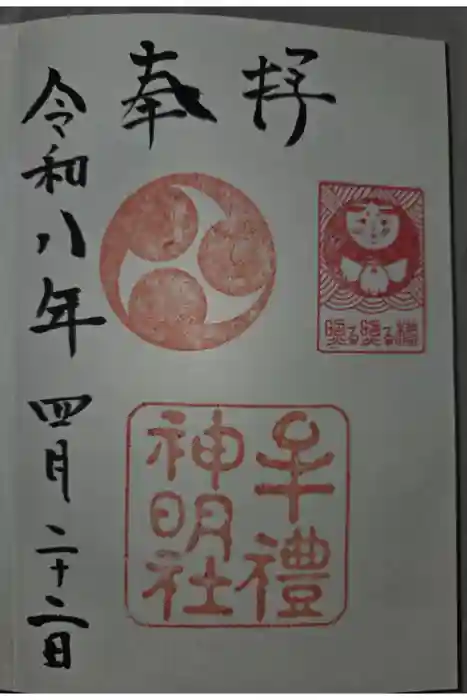 奉拝
牟禮
神明社
令和八年 四月二十二日